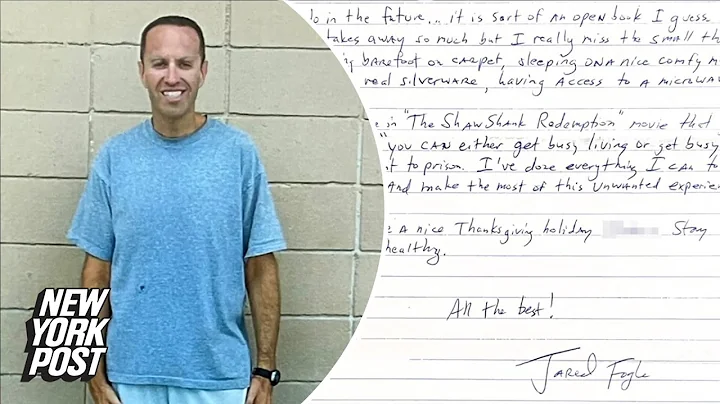 do in the future... it is sort of an open book I guess.
takes away so much but I really miss the small th
barefoot on carpet, sleeping on a nice comfy m
real silverware, having access to a microwav
in "The Shawshank Redemption" movie that
"you can either get busy living or get busy
to prison. I've done everything I can to
and make the most of this unwanted experie
a nice Thanksgiving holiday Stay
healthy.
All the best!
Jared Fogle
NEW
YORK
POST